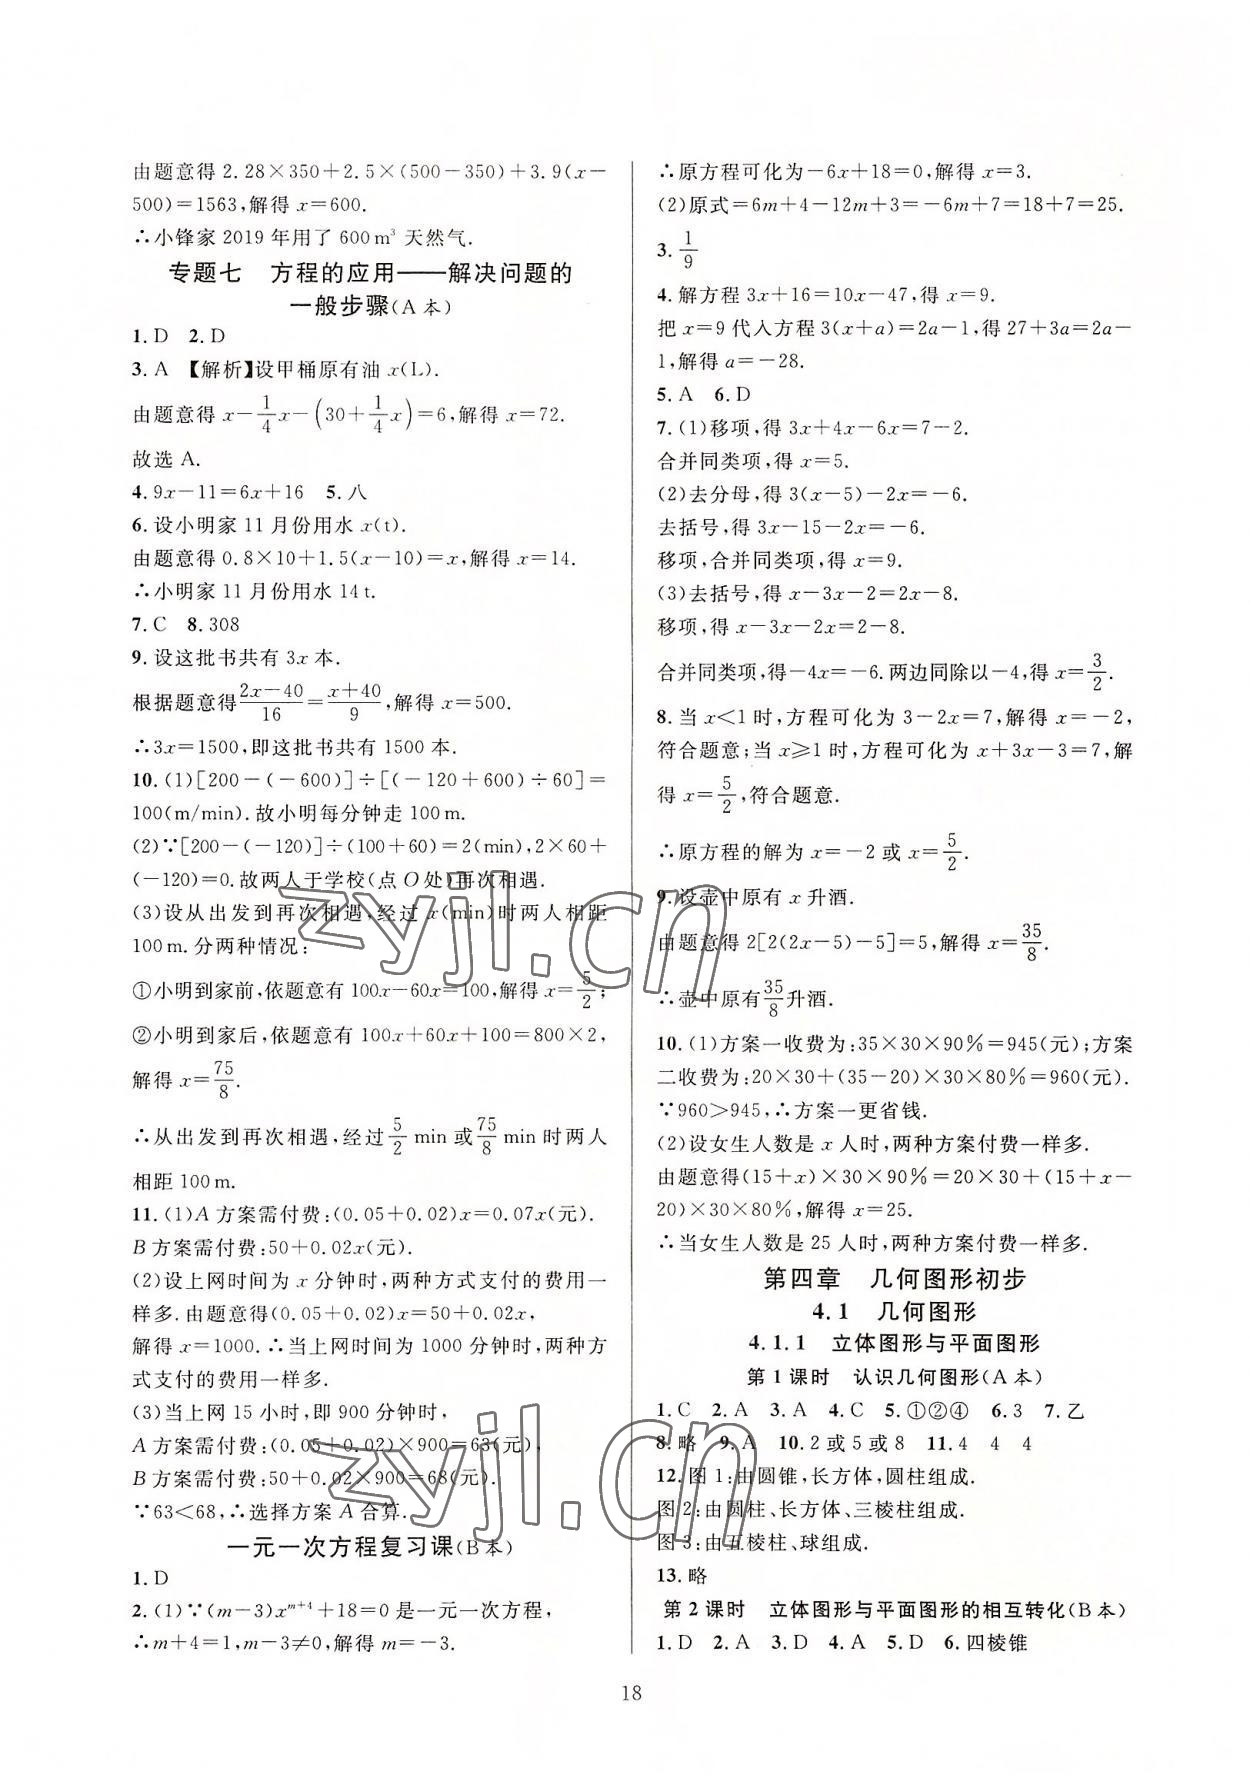 由题意得 2.28×350+2.5×(500-350)+3.9(x-
500)=1563,解得 x=600.
∴小锋家 2019 年用了 600 m³ 天然气.
专题七 方程的应用——解决问题的
一般步骤(A 本)
1. D 2. D
3. A 【解析】设甲桶原有油 x(L).
由题意得 x-1/4x-(30+1/4x)=6,解得 x=72.
故选 A.
4. 9x-11=6x+16 5. 八
6. 设小明家 11 月份用水 x(t).
由题意得 0.8×10+1.5(x-10)=x,解得 x=14.
∴小明家 11 月份用水 14 t.
7. C 8. 308
9. 设这批书共有 3x 本.
根据题意得(2x-40)/16=(x+40)/9,解得 x=500.
∴3x=1500,即这批书共有 1500 本.
10. (1)[200-(-600)]÷[(-120+600)÷60]=
100(m/min).故小明每分钟走 100 m.
(2)∵[200-(-120)]÷(100+60)=2(min),2×60+
(-120)=0.故两人于学校(点 O 处)再次相遇.
(3)设从出发到再次相遇,经过 x(min)时两人相距
100 m.分两种情况:
①小明到家前,依题意有 100x-60x=100,解得 x=5/2;
②小明到家后,依题意有 100x+60x+100=800×2,
解得 x=75/8.
∴从出发到再次相遇,经过 5/2 min 或 75/8 min 时两人
相距 100 m.
11. (1)A 方案需付费:(0.05+0.02)x=0.07x(元).
B 方案需付费:50+0.02x(元).
(2)设上网时间为 x 分钟时,两种方式支付的费用一
样多.由题意得(0.05+0.02)x=50+0.02x,
解得 x=1000.∴当上网时间为 1000 分钟时,两种方
式支付的费用一样多.
(3)当上网 15 小时,即 900 分钟时,
A 方案需付费:(0.05+0.02)×900=63(元),
B 方案需付费:50+0.02×900=68(元).
∵63<68,∴选择方案 A 合算.
一元一次方程复习课(B 本)
1. D
2. (1)∵(m-3)x^{m+4}+18=0 是一元一次方程,
∴m+4=1,m-3≠0,解得 m=-3.
∴原方程可化为-6x+18=0,解得 x=3.
(2)原式=6m+4-12m+3=-6m+7=18+7=25.
3. 1/9
4. 解方程 3x+16=10x-47,得 x=9.
把 x=9 代入方程 3(x+a)=2a-1,得 27+3a=2a-
1,解得 a=-28.
5. A 6. D
7. (1)移项,得 3x+4x-6x=7-2.
合并同类项,得 x=5.
(2)去分母,得 3(x-5)-2x=-6.
去括号,得 3x-15-2x=-6.
移项,合并同类项,得 x=9.
(3)去括号,得 x-3x-2=2x-8.
移项,得 x-3x-2x=2-8.
合并同类项,得-4x=-6.两边同除以-4,得 x=3/2.
8. 当 x<1 时,方程可化为 3-2x=7,解得 x=-2,
符合题意;当 x≥1 时,方程可化为 x+3x-3=7,解
得 x=5/2,符合题意.
∴原方程的解为 x=-2 或 x=5/2.
9. 设壶中原有 x 升酒.
由题意得 2[2(2x-5)-5]=5,解得 x=35/8.
∴壶中原有35/8升酒.
10. (1)方案一收费为:35×30×90%=945(元);方案
二收费为:20×30+(35-20)×30×80%=960(元).
∵960>945,∴方案一更省钱.
(2)设女生人数是 x 人时,两种方案付费一样多.
由题意得(15+x)×30×90%=20×30+(15+x-
20)×30×80%,解得 x=25.
∴当女生人数是 25 人时,两种方案付费一样多.
第四章 几何图形初步
4.1 几何图形
4.1.1 立体图形与平面图形
第 1 课时 认识几何图形(A 本)
1. C 2. A 3. A 4. C 5. ①②④ 6. 3 7. 乙
8. 略 9. A 10. 2 或 5 或 8 11. 4 4 4
12. 图 1:由圆锥,长方体,圆柱组成.
图 2:由圆柱、长方体、三棱柱组成.
图 3:由五棱柱、球组成.
13. 略
第 2 课时 立体图形与平面图形的相互转化(B 本)
1. D 2. A 3. D 4. A 5. D 6. 四棱锥
18
zyjl.cn
zyjl.cn